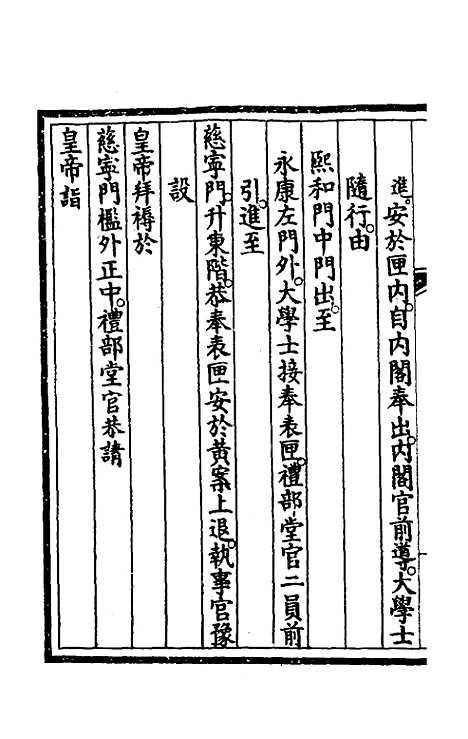 進。安於匣内。自内閣奉出。内閣官前導。大學士
隨行。由
熙和門中門出。至
永康左門外。大學士接奉表匣。禮部堂官二員前
引。進至
慈寧門。升東階。恭奉表匣安於黃案上退。執事官豫
設
皇帝拜褥於
慈寧門檻外正中。禮部堂官恭請
皇帝詣